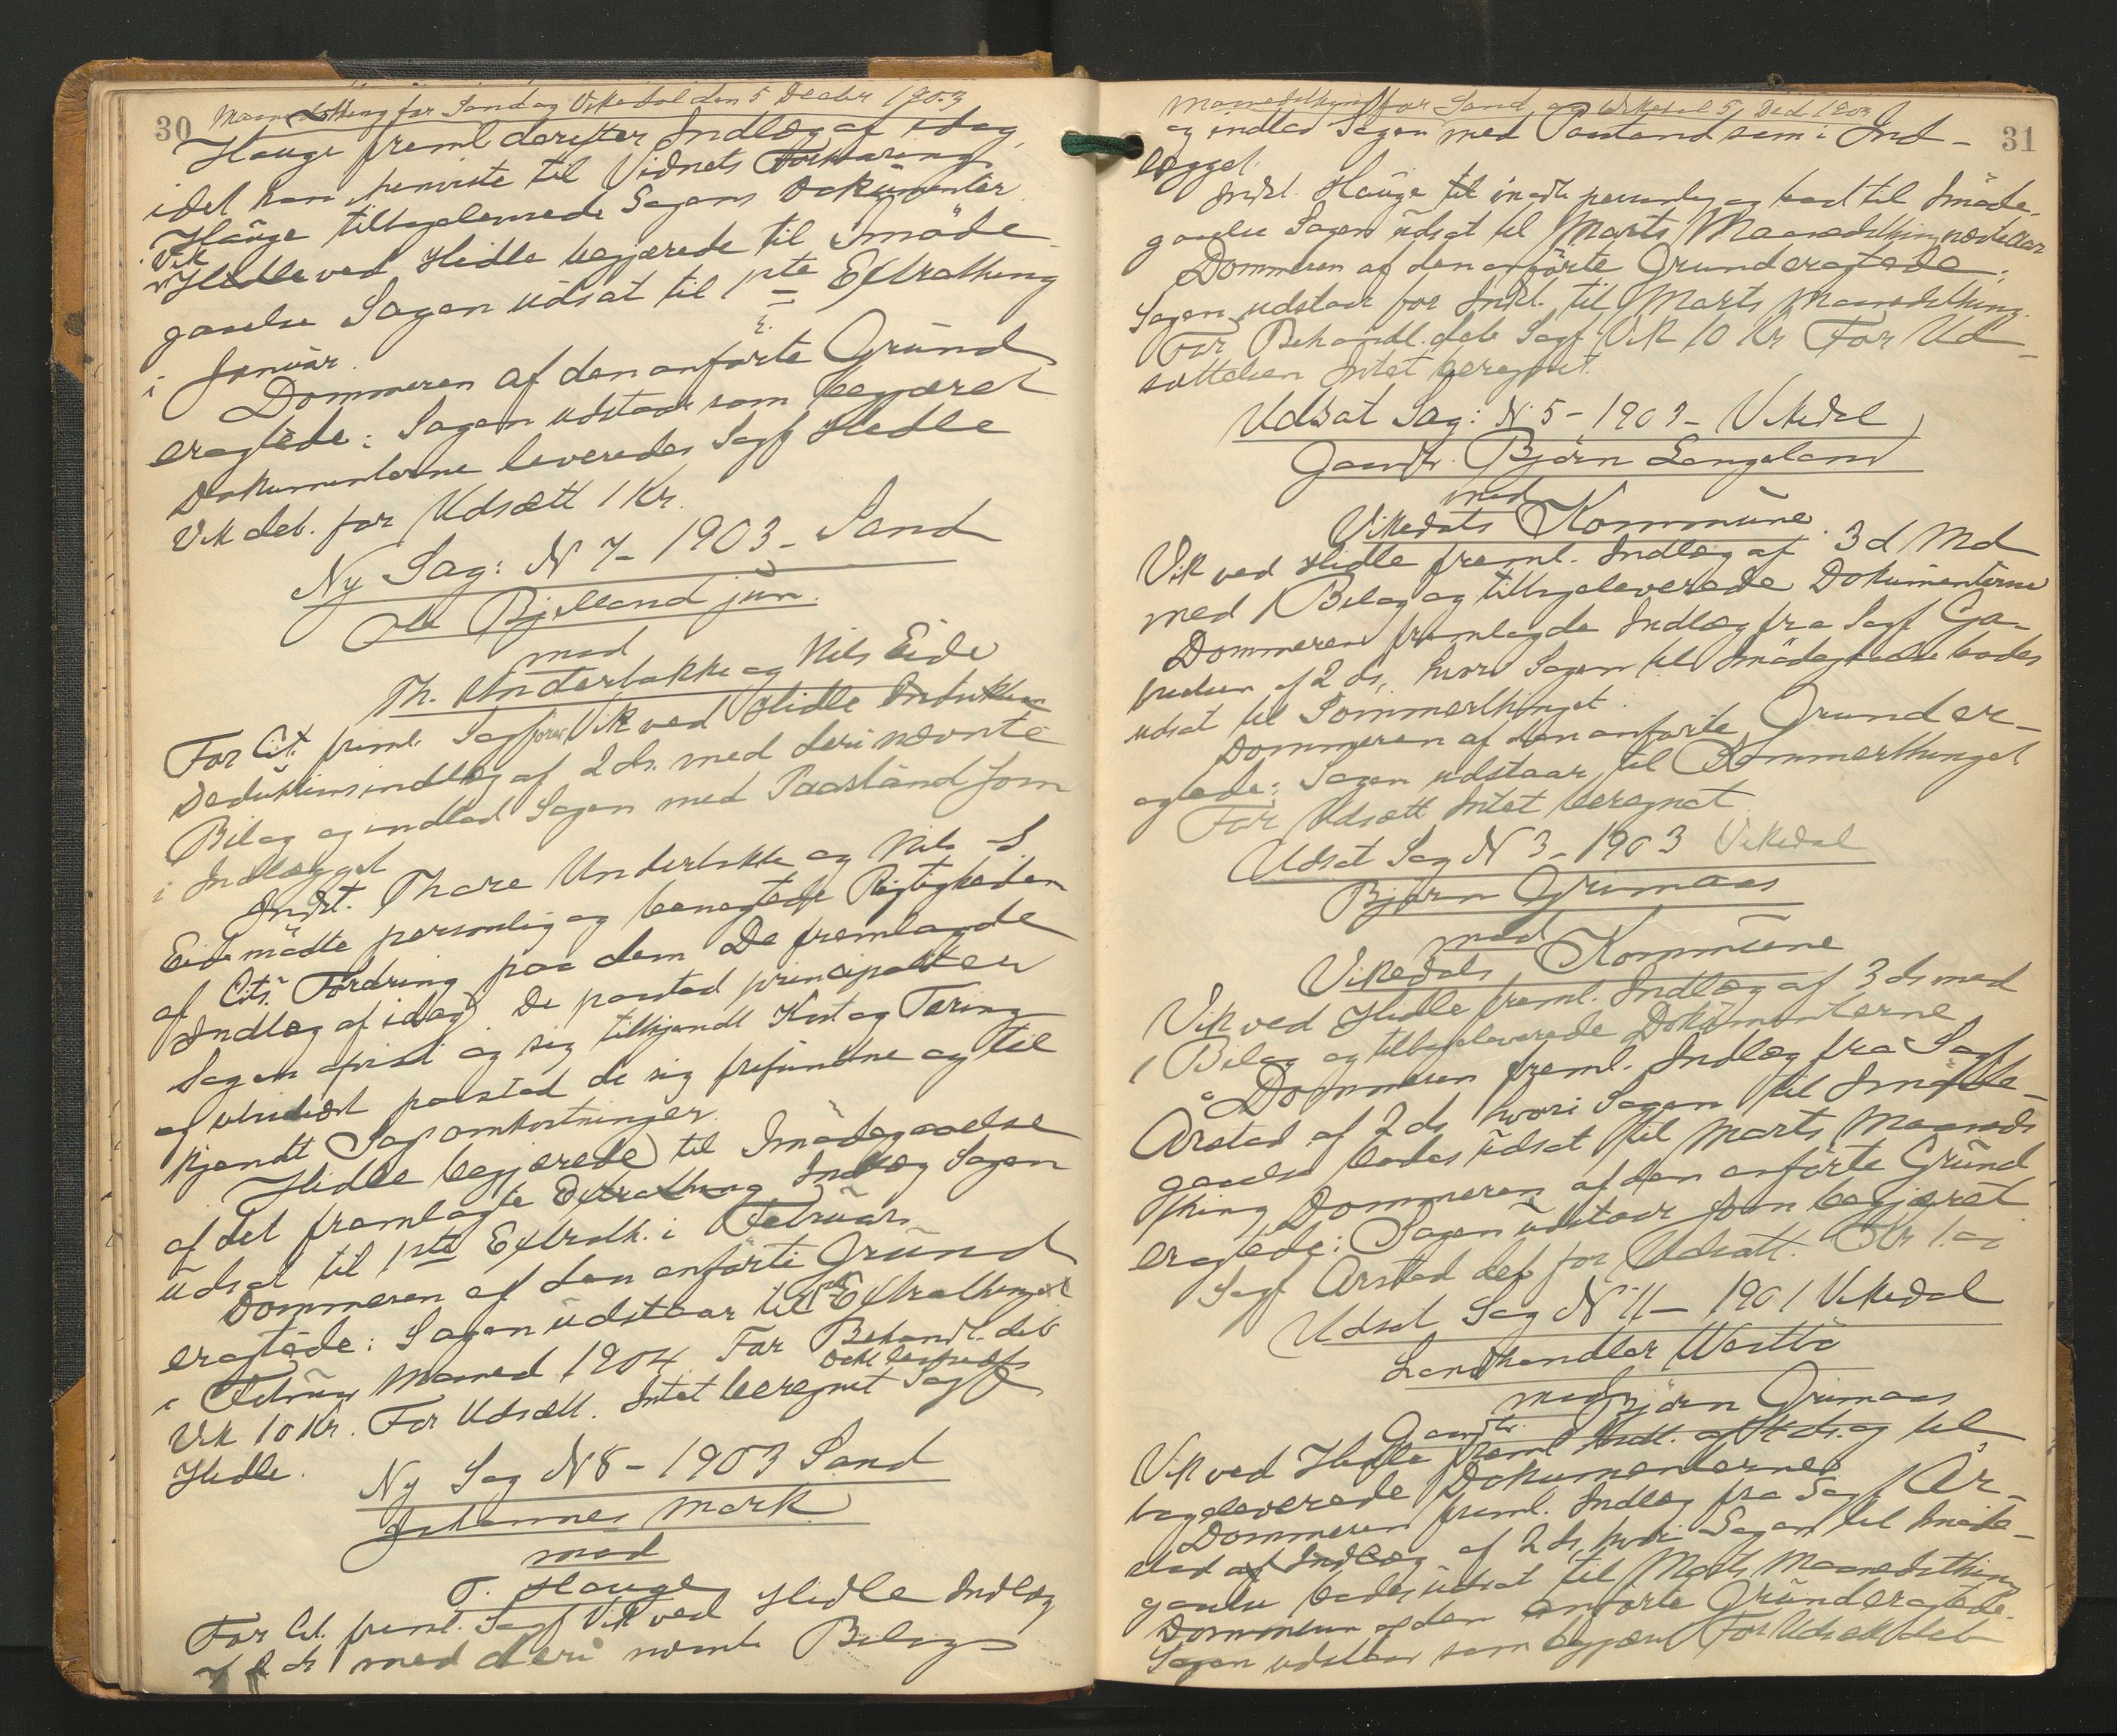 30 Maanedsthing for Sand og Vikedal den 5 Decbr 1903
Hauge freml derefter Indlæg af idag,
idet han henviste til Vidnets Forklaring
Hauge tilbageleverede Sagens Dokumenter
Vik
Hidle ved Hidle begjærede til Imøde-
gaaelse Sagen udsat til 1ste Extrathing
i Januar.
Dommeren af den anførte Grund
eragtede: Sagen udstaar som begjæret
Dokumenterne leveredes Sagf Hidle
Vik deb. for Udsætt 1 Kr.
Ny Sag: N 7 - 1903 - Sand
Ole Bjelland jun.
mod
Th. Underbakke og Nils Eide
For Cit. freml. Sagfører Vik ved Hidle
Deduktionsindlæg af 2 ds. med deri nævnte
Bilag og indlod Sagen med Paastand som
i Indlægget
Indst. Thore Underbakke og Nils S
Eide mødte personlig og benegtede Rigtigheden
af Cits. Fordring paa dem De fremlagde
Indlæg af idag. De paastod principalter
Sagen afvist og sig tilkjendt Kost og Tæring
og subsidiært paastod de sig frifundne og til
kjendt Sagsomkostninger.
Hidle begjærede til Imødegaaelse
af det fremlagte Extrathing Indlæg Sagen
udsat til 1ste Extrath. i Februar
Dommeren af den anførte Grund
eragtede: Sagen udstaar til 1ste Extrathinget
i Februar Maaned 1904 For Behandl. deb
Vik 10 Kr. For Udsætt. Intet beregnet Sagf
Hidle.
Ny Sag N 8 - 1903 Sand
Johannes Mørk
mod
T. Hauge
For Cit. freml. Sagf Vik ved Hidle Indlæg
af 2 ds med deri nævnte Bilag
Maanedsthing for Sand og Vikedal 5 Decb 1903 31
og indlod Sagen med Paastand som i Ind-
lægget.
Indst. Hauge til mødte personlig og bad til Imøde-
gaaelse Sagen udsat til Marts Maanedsthing næste Aar
Dommeren af den anførte Grund eragtede:
Sagen udstaar for Indst. til Marts Maanedsthing.
For Behandl. deb Sagf Vik 10 Kr For Ud-
sættelsen Intet beregnet.
Udsat Sag: N 5 - 1903 - Vikedal
Gaardbr. Bjørn Langeland
mod
Vikedals Kommune.
Vik ved Hidle freml. Indlæg af 3 d Md
med 1 Bilag og tilbageleverede Dokumenterne
Dommeren fremlagde Indlæg fra Sagf Ga-
brielsen af 2 ds, hvori Sagen til Imødegaaelse bades
udsat til Sommerthinget.
Dommeren af den anførte Grund er-
agtede: Sagen udstaar til Sommerthinget
For Udsætt Intet beregnet
Udsat Sag N 3 - 1903 Vikedal
Bjørn Grimaas
mod
Vikedals Kommune
Vik ved Hidle freml. Indlæg af 3 ds med
1 Bilag og tilbageleverede Dokumenterne
Dommeren freml. Indlæg fra Sagf
Arstad af 2 ds hvori Sagen til Imøde-
gaaelse bades udsat til Marts Maaneds
thing Dommeren af den anførte Grund
eragtede: Sagen udstaar som begjæret
Sagf Arstad deb for Udsætt. Kr 1.00
Udsat Sag N 11 - 1901 Vikedal
Landhandler Westbø
mod
Gaardbr. Bjørn Grimaas
Vik ved Hidle freml Indl. af 4 ds. og til
bageleverede Dokumenterne
Dommeren freml. Indlæg fra Sagf Ar-
stad af Indlæg af 2 ds, hvori Sagen til Imøde-
gaaelse bades udsat til Marts Maanedsthing
Dommeren af den anførte Grund eragtede.
Sagen udstaar som begjæret For Udsætt deb